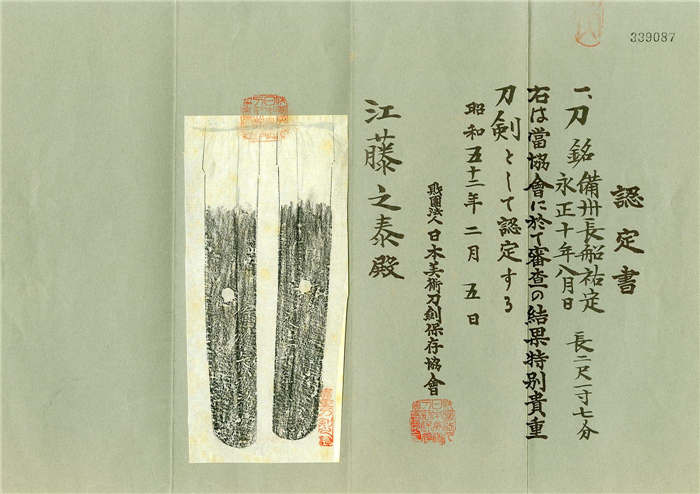 339087
認定書
一、刀 銘 備州長船祐定
永正十年八月日 長二尺一寸七分
右は當協會に於て審査の結果特別貴重
刀劍として認定する
昭和五十二年二月五日
財團法人日本美術刀劍保存協會
江藤之泰殿